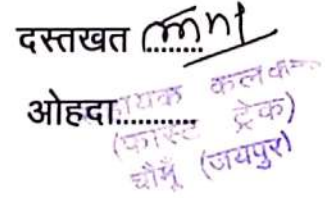 दस्तखत ............
ओहदा............
सहायक कलक्टर
(फास्ट ट्रेक)
चौमूँ (जयपुर)